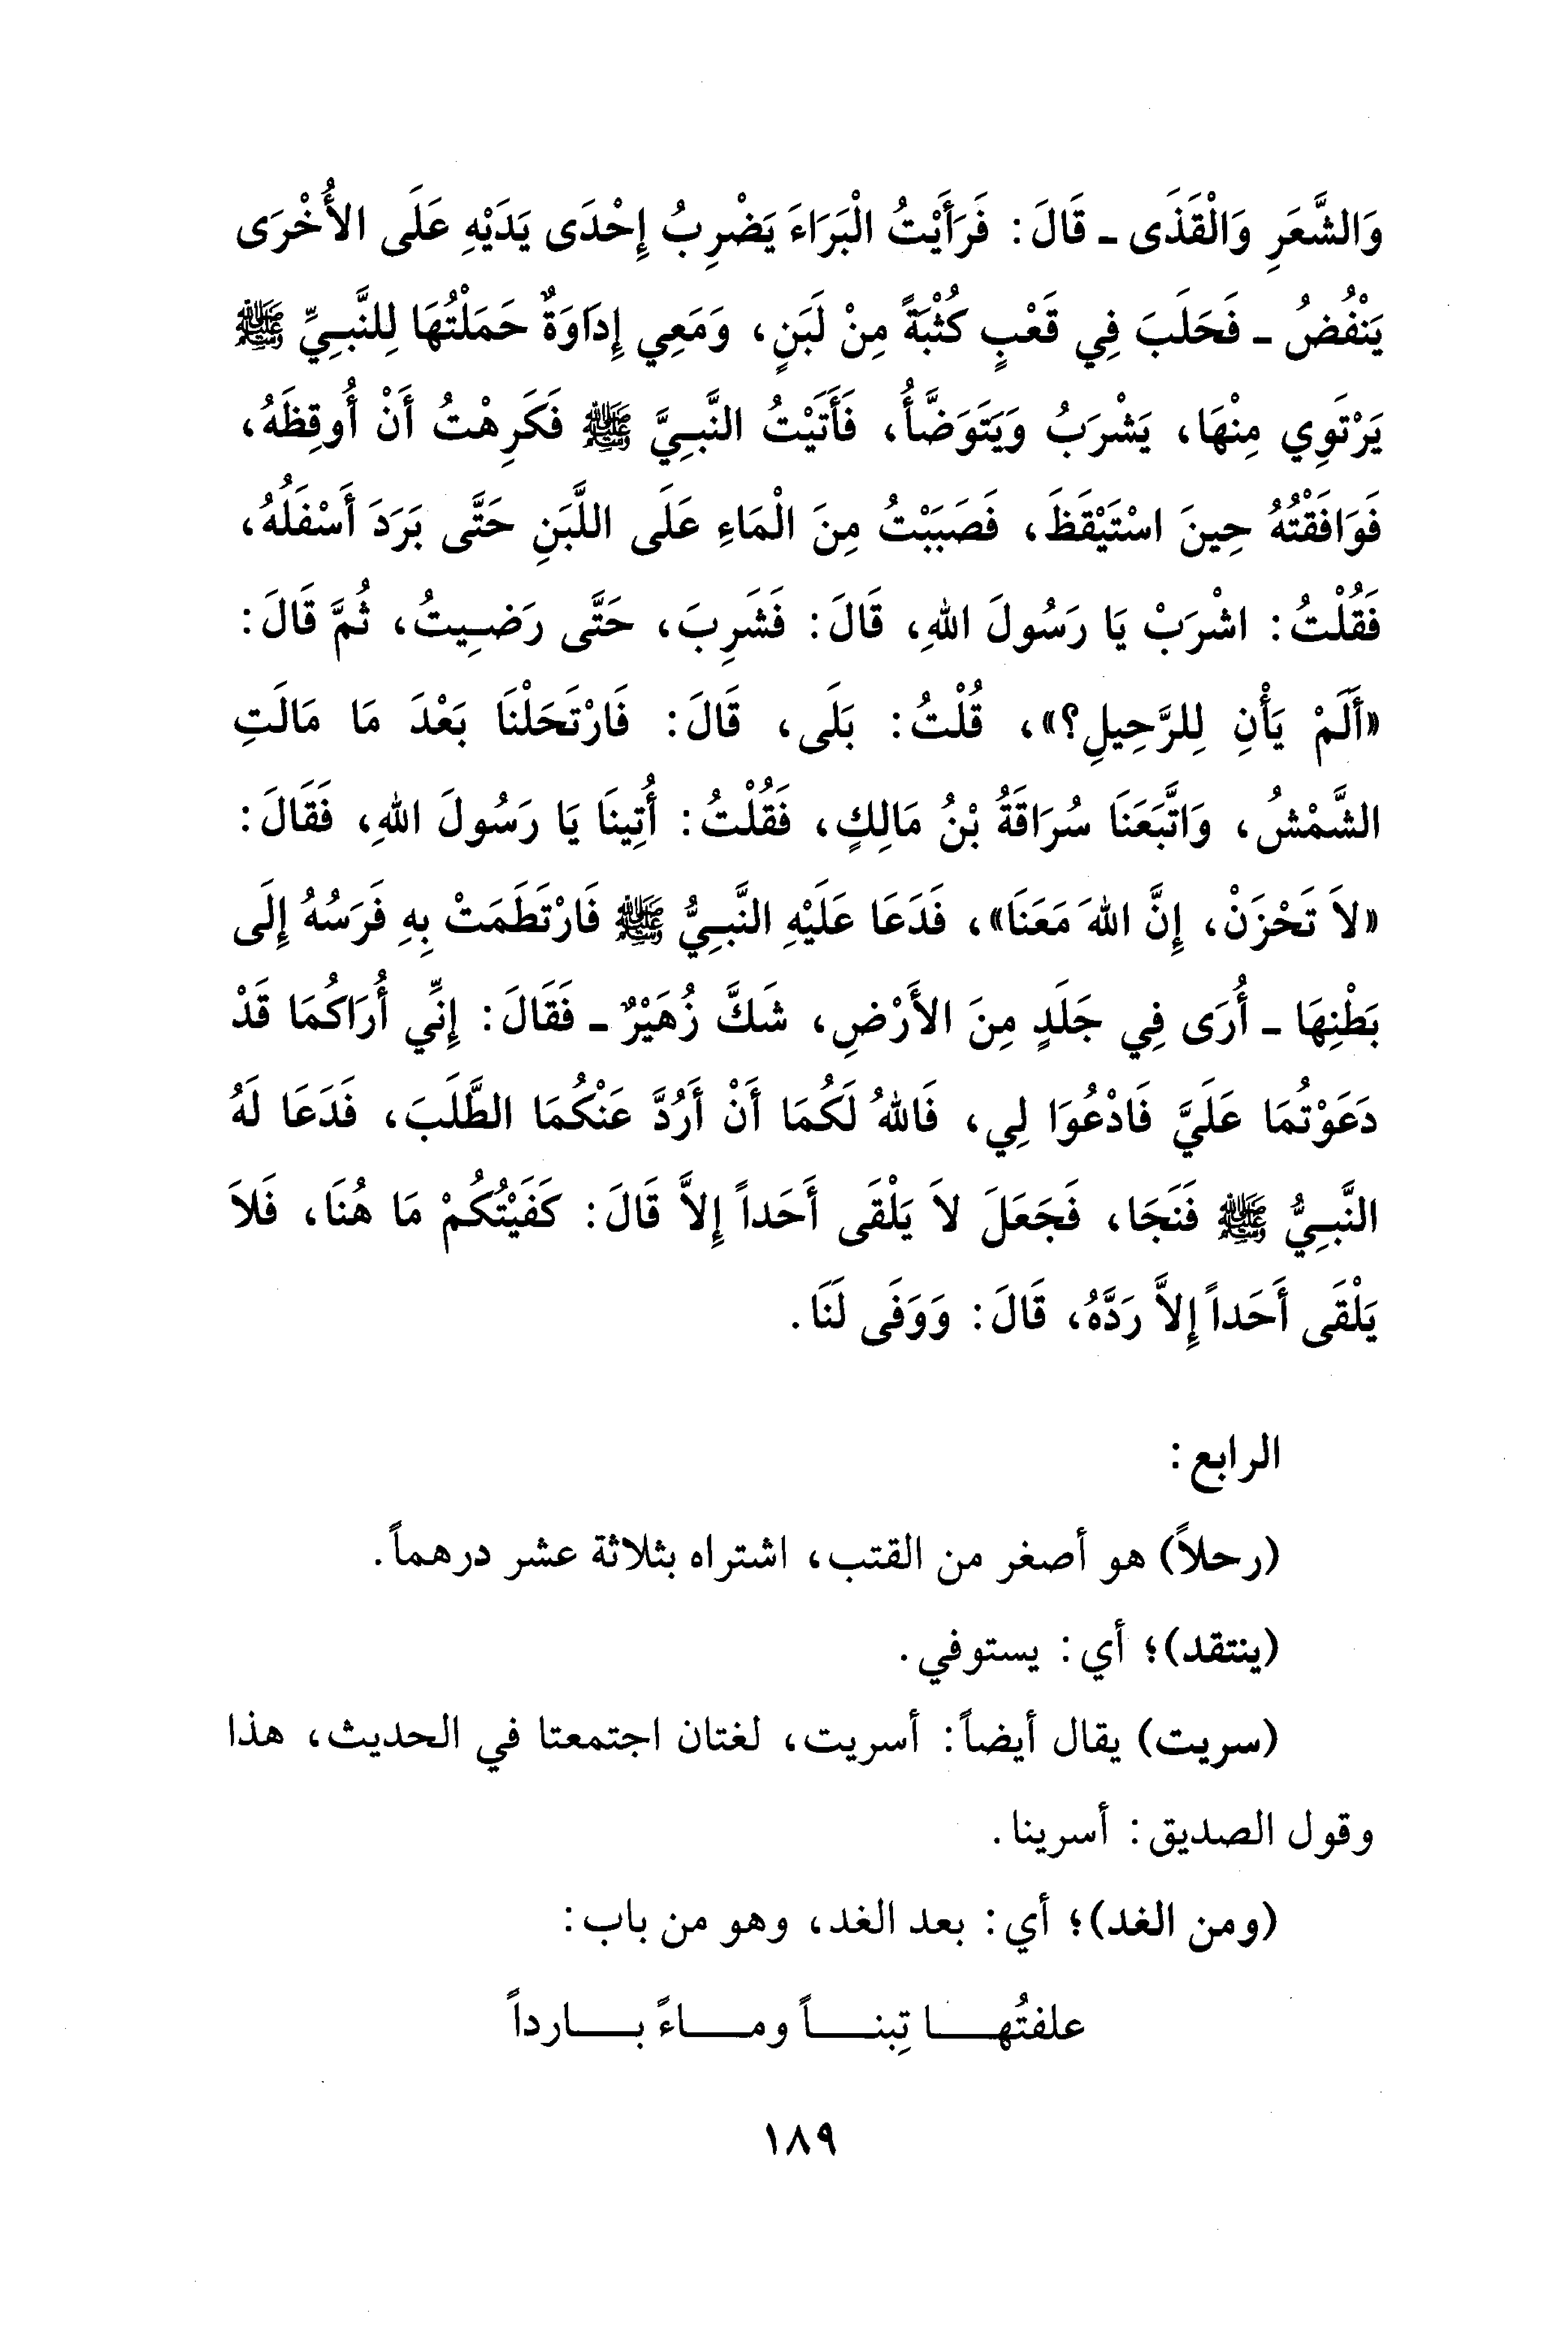 وَالشَّعَرِ وَالْقَذَى ـ قَالَ: فَرَأَيْتُ الْبَرَاءَ يَضْرِبُ إِحْدَى يَدَيْهِ عَلَى الأُخْرَى
يَنْفُضُ ـ فَحَلَبَ فِي قَعْبٍ كُثْبَةً مِنْ لَبَنٍ، وَمَعِي إِدَاوَةٌ حَمَلْتُهَا لِلنَّبِيِّ ﷺ
يَرْتَوِي مِنْهَا، يَشْرَبُ وَيَتَوَضَّأُ، فَأَتَيْتُ النَّبِيَّ ﷺ فَكَرِهْتُ أَنْ أُوقِظَهُ،
فَوَافَقْتُهُ حِينَ اسْتَيْقَظَ، فَصَبَبْتُ مِنَ الْمَاءِ عَلَى اللَّبَنِ حَتَّى بَرَدَ أَسْفَلُهُ،
فَقُلْتُ: اشْرَبْ يَا رَسُولَ اللهِ، قَالَ: فَشَرِبَ، حَتَّى رَضِيتُ، ثُمَّ قَالَ:
«أَلَمْ يَأْنِ لِلرَّحِيلِ؟»، قُلْتُ: بَلَى، قَالَ: فَارْتَحَلْنَا بَعْدَ مَا مَالَتِ
الشَّمْسُ، وَاتَّبَعَنَا سُرَاقَةُ بْنُ مَالِكٍ، فَقُلْتُ: أُتِينَا يَا رَسُولَ اللهِ، فَقَالَ:
«لاَ تَحْزَنْ، إِنَّ اللهَ مَعَنَا»، فَدَعَا عَلَيْهِ النَّبِيُّ ﷺ فَارْتَطَمَتْ بِهِ فَرَسُهُ إِلَى
بَطْنِهَا ـ أُرَى فِي جَلَدٍ مِنَ الأَرْضِ، شَكَّ زُهَيْرٌ ـ فَقَالَ: إِنِّي أُرَاكُمَا قَدْ
دَعَوْتُمَا عَلَيَّ فَادْعُوَا لِي، فَاللهُ لَكُمَا أَنْ أَرُدَّ عَنْكُمَا الطَّلَبَ، فَدَعَا لَهُ
النَّبِيُّ ﷺ فَنَجَا، فَجَعَلَ لاَ يَلْقَى أَحَداً إِلاَّ قَالَ: كَفَيْتُكُمْ مَا هُنَا، فَلاَ
يَلْقَى أَحَداً إِلاَّ رَدَّهُ، قَالَ: وَوَفَى لَنَا.
الرابع:
(رحلاً) هو أصغر من القتب، اشتراه بثلاثة عشر درهماً.
(ينتقد)؛ أي: يستوفي.
(سريت) يقال أيضاً: أسريت، لغتان اجتمعتا في الحديث، هذا
وقول الصديق: أسرينا.
(ومن الغد)؛ أي: بعد الغد، وهو من باب:
علفتُهـــا تِبنـــاً ومـــاءً بـــارداً
١٨٩